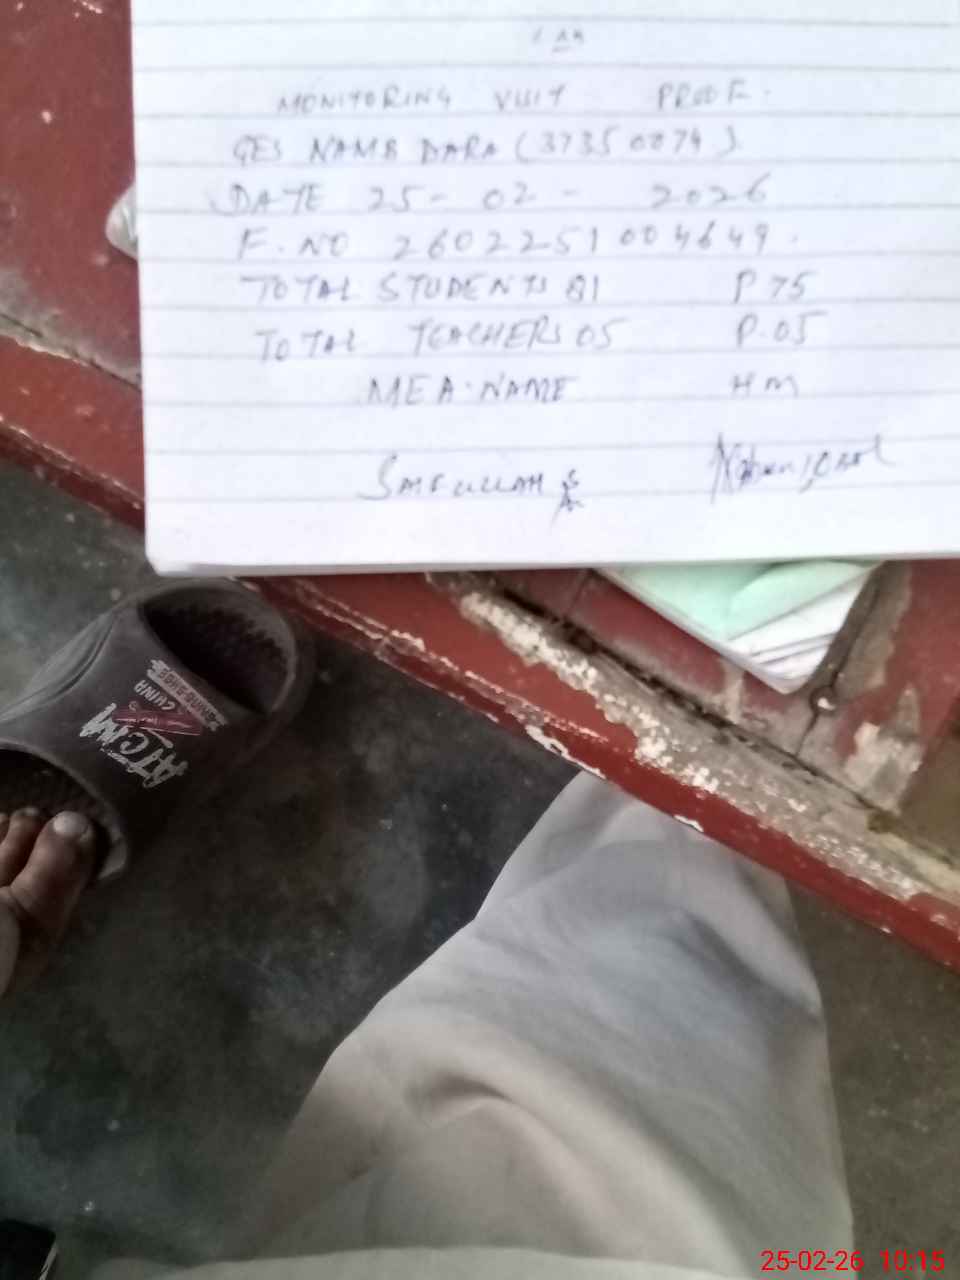 MONITORING VISIT PROOF.
GES NAMB DARA (37350074).
DATE 25-02-2026
F. NO 2602251004649.
TOTAL STUDENTS 81 P 75
TOTAL TEACHERS 05 P.05
MEA. NAME HM
SAIFULLAH
ATCNA
CHINA
25-02-26 10:15